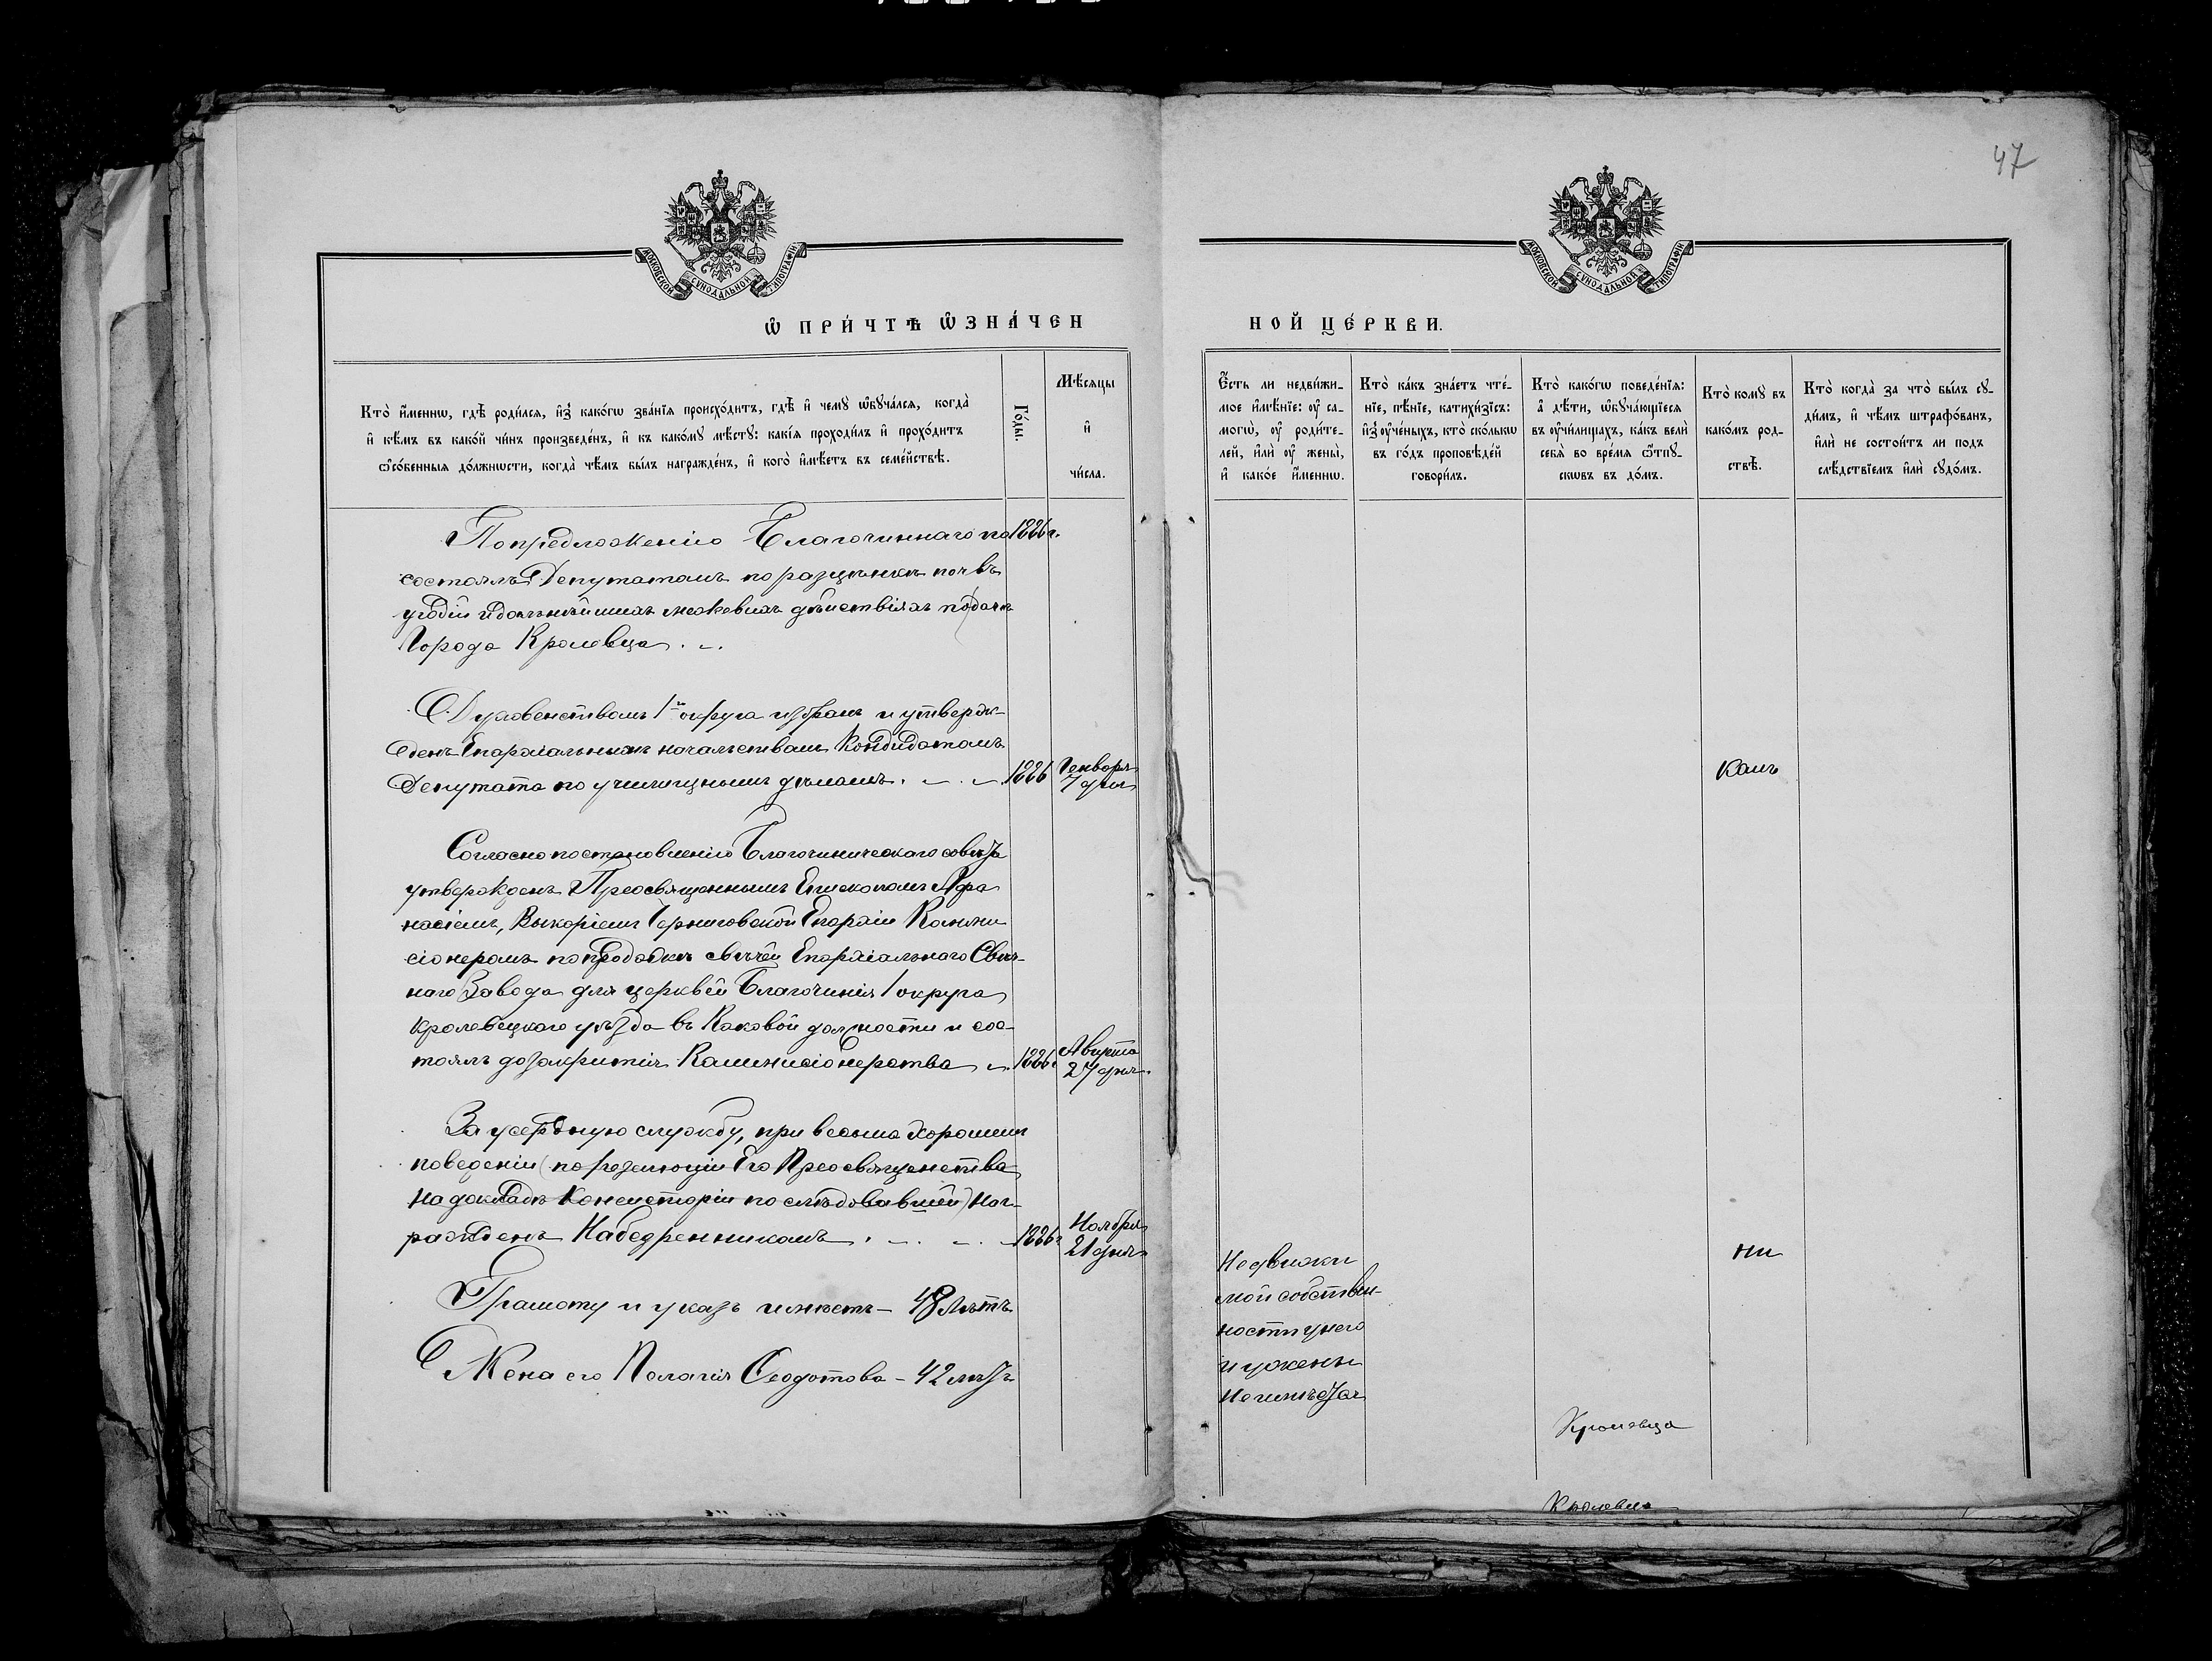 47
МОСКОВСКОЙ СѴНОДАЛЬНОЙ ТИПОГРАФІИ
МОСКОВСКОЙ СѴНОДАЛЬНОЙ ТИПОГРАФІИ
Ѡ ПРИ́ЧТѢ Ѡ҆ЗНА́ЧЕН
НОЙ ЦЕ́РКВИ.
Кто̀ и҆́меннѡ, гдѣ̀ роди́лсѧ, и҆з̾ како́гѡ зва́нїѧ происхо́дитъ, гдѣ̀ и҆ чемꙋ̀ ѡ҆бꙋча́лсѧ, когда̀
и҆ кѣ́мъ въ како́й чи́нъ произведе́нъ, и҆ къ како́мꙋ мѣ́стꙋ: какі́ѧ проходи́лъ и҆ прохо́дитъ
ѻ҆со́бенныѧ до́лжнѡсти, когда̀ чѣ́мъ бы́лъ награжде́нъ, и҆ кого̀ и҆мѣ́етъ въ семе́йствѣ.
Го́ды.
Мѣ́сѧцы
и҆
чи́сла.
Є҆́сть ли недви́жи-
мое и҆мѣ́нїе: оу҆ са-
могѡ̀, оу҆ роди́те-
лей, и҆лѝ оу҆ жены̀,
и҆ како́е и҆́меннѡ.
Кто̀ ка́къ зна́етъ чте́-
нїе, пѣ́нїе, катихи́зїсъ:
и҆з̾ оу҆че́ныхъ, кто̀ ско́лькѡ
въ го́дъ проповѣ́дей
говори́лъ.
Кто̀ како́гѡ поведе́нїѧ:
а҆ дѣ́ти, ѡ҆бꙋча́ющїесѧ
въ оу҆чи́лищахъ, ка́къ велѝ
себѧ̀ во вре́мѧ ѿпꙋ-
скѡвъ въ до́мъ.
Кто̀ комꙋ̀ въ
како́мъ род-
ствѣ̀.
Кто̀ когда̀ за что̀ бы́лъ сꙋ-
ди́мъ, и҆ чѣ́мъ штрафо́ванъ,
и҆лѝ не состои́тъ ли подъ
слѣ́дствїемъ и҆лѝ сꙋдо́мъ.
По предложенію Благочиннаго 1886 г.
состоялъ Депутатомъ по разцѣнкѣ почвъ
угодій и дальнѣйшихъ межевыхъ дѣйствіяхъ
Города Кролевца
Духовенствомъ 1го округа избранъ и утверж-
денъ Епархіальнымъ начальствомъ Кондидатомъ
Депутата по училищнымъ дѣламъ 1886 Генваря
7 дня
Согласно постановленію Благочиническаго совѣта
утвержденъ Преосвященнымъ Епископомъ Афа
насіемъ, Выкоріемъ Черниговской Епархіи Комми
сіонеромъ по продажѣ свѣчей Епархіальнаго Свѣч-
наго Завода для церквей Благочинія 1 округа
Кролевецкаго уѣзда въ каковой должности и сос-
тоялъ до закрытія Коммисіонерства 1886 г Августа
27 дня.
За усердную службу, при весьма хорошемъ
поведеніи (по резолюціи Его Преосвященства
на докладѣ Консисторіи по слѣдовавшей) наг-
ражденъ Набедренникомъ 1886 г Ноября
21 дня
Грамоту и указъ имѣетъ - 48 лѣтъ
Жена его Пелагія Феодотова - 42 лѣтъ
Недвижи
мой собствен-
ности у него
и у жены
не имѣется
ни
Кролевца
Кролевца